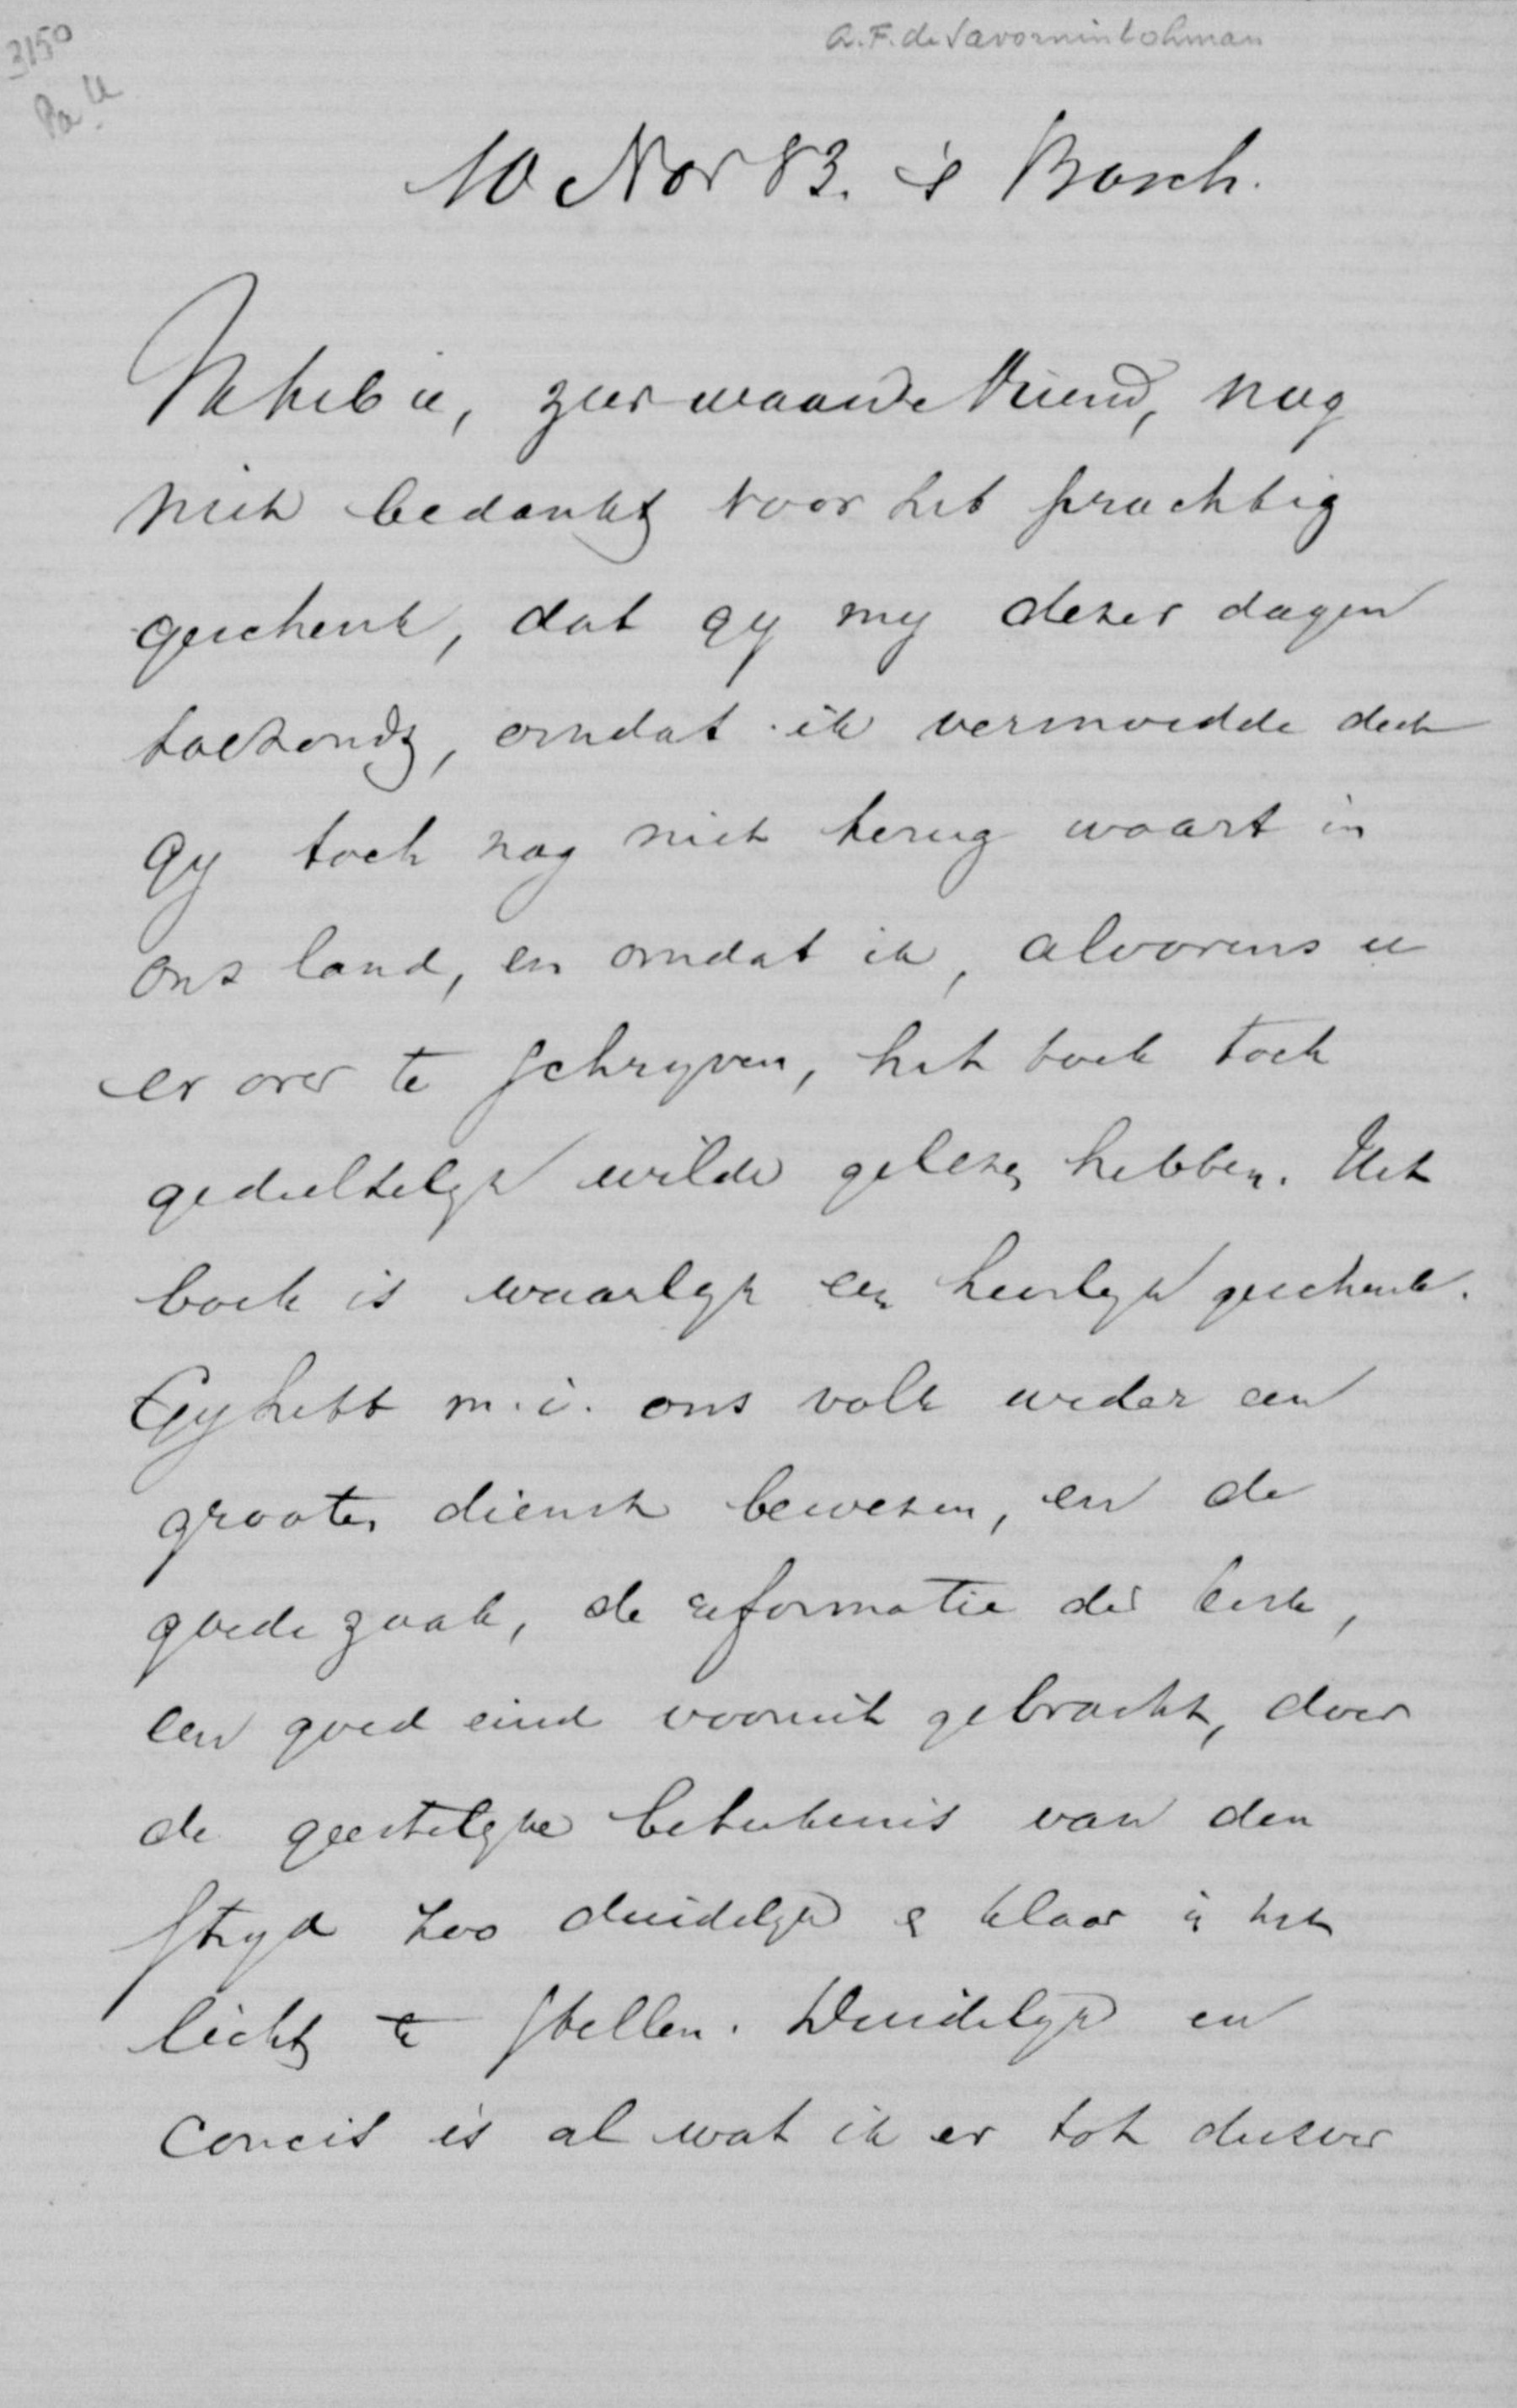 3150
A.F. de Savornin Lohman
10 Nov 83. 's Bosch.
Ik heb u, zeer waarde Vriend, nog
niet bedankt voor het prachtig
geschenk, dat gy my dezer dagen
toezondt, omdat ik vermoedde dat
gy toch nog niet terug waart in
ons land, en omdat ik, alvorens u
er over te schryven, het boek toch
gedeeltelyk wilde gelezen hebben. Het
boek is waarlyk een heerlyk geschenk.
Gy hebt m.i. ons volk weder een
grooten dienst bewezen, en de
goede zaak, de reformatie der kerk,
een goed eind vooruit gebracht, door
de geestelyke beteekenis van den
stryd zoo duidelyk & klaar in het
licht te stellen. Duidelyk en
concis is al wat ik er tot dusver